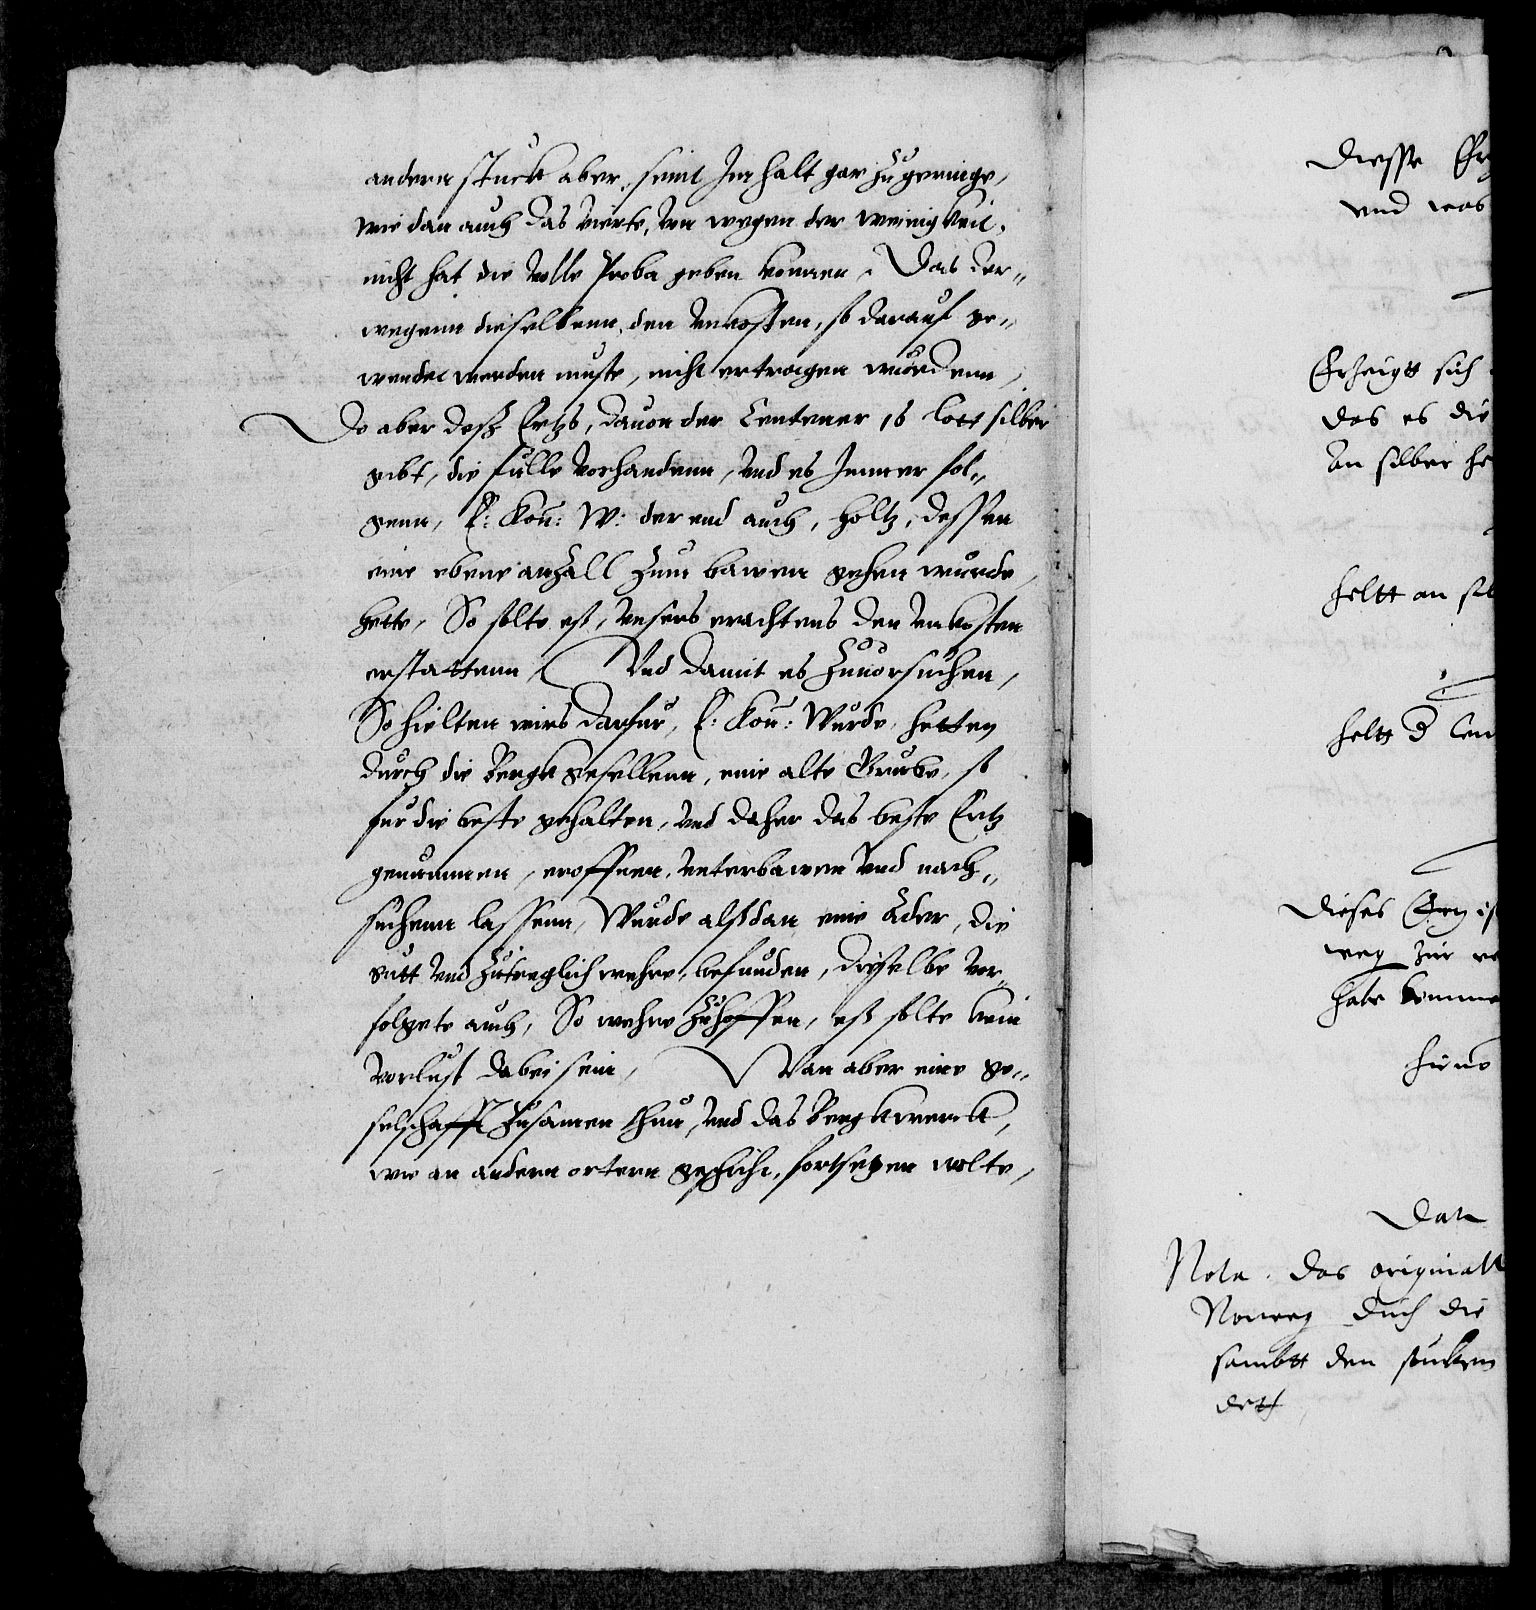 andern stuck aber, seint Jm halt gar zu geringe,
wie dan auch das vierte, von wegen der wenigkeit,
nicht hat die volle Proba geben konnen, Das der„
wegenn dieselbenn, den vnkosten, so darauf ge„
wendet werden muste, nicht ertragen wurdenn,
Do aber deß Ertzs, dauon der Centener 16 lott silber
gibt, die fulle vorhandenn, vnd es Jmmer fol„
genn, E: Kon: W: der end auch, holtz, dessen
eine ebene anzall zum bawen gehen wurde,
hette, So solte eß, vnsers erachtens den vnkosten
erstattenn, Vnd damit es zuuorsuchen,
So hielten wirs darfur, E: Kon: Wurde, hetten
durch die Bergk gesellenn, eine alte Grube, so
fur die beste gehalten, vnd daher das beste Ertz
genommen, eroffnen, vnterbawen vnd nach„
suchenn lassenn, Wurde alßdan eine Ader, die
gutt vnd zutreglich wehre, befunden, dieselbe vor„
folgete auch, So wehre zuhoffen, eß solte kein
vorlust dabei sein, Wan aber eine ge„
selschafft zusamen thun, vnd das Bergkwerck,
wie an andern ortern geschicht, fortsetzen wolte,
Diesse
vnd was
Erzeigtt sich
das es die
an silber
heltt an
heltt
Dieses
weg zur
habe
Nota. das originall
Norweg durch die
sambtt den